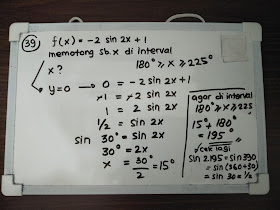 39
f(x) = -2 sin 2x + 1
memotong sb.x di interval
180° ≥ x ≥ 225°
x?
y=0 → 0 = -2 sin 2x + 1
-1 = -2 sin 2x
1 = 2 sin 2x
1/2 = sin 2x
sin 30° = sin 2x
30° = 2x
x = 30°/2 = 15°
agar di interval
180° ≥ x ≥ 225
15° + 180°
= 195°
*cek lagi
sin 2.195 = sin 390
= sin (360+30)
= sin 30 = 1/2